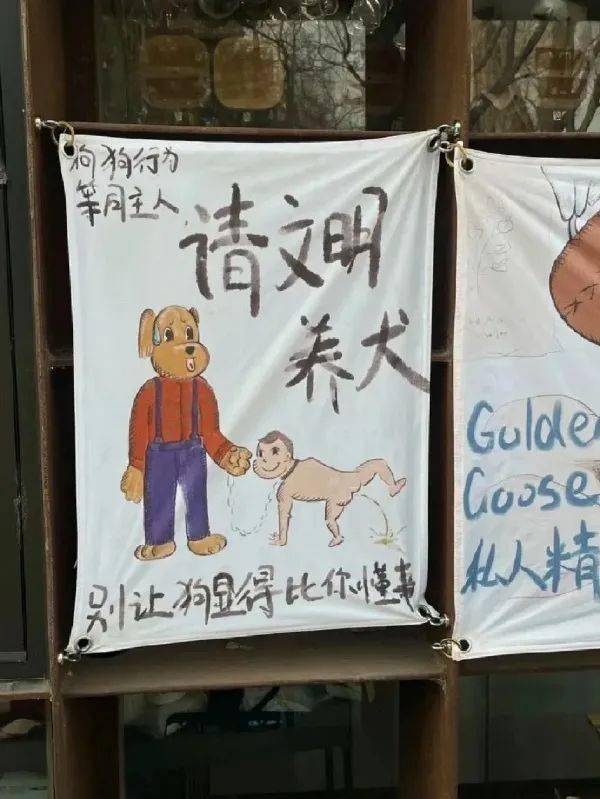 狗狗行为
等同主人
请文明
养犬
别让狗显得比你懂事
Golde
Goose
私人精